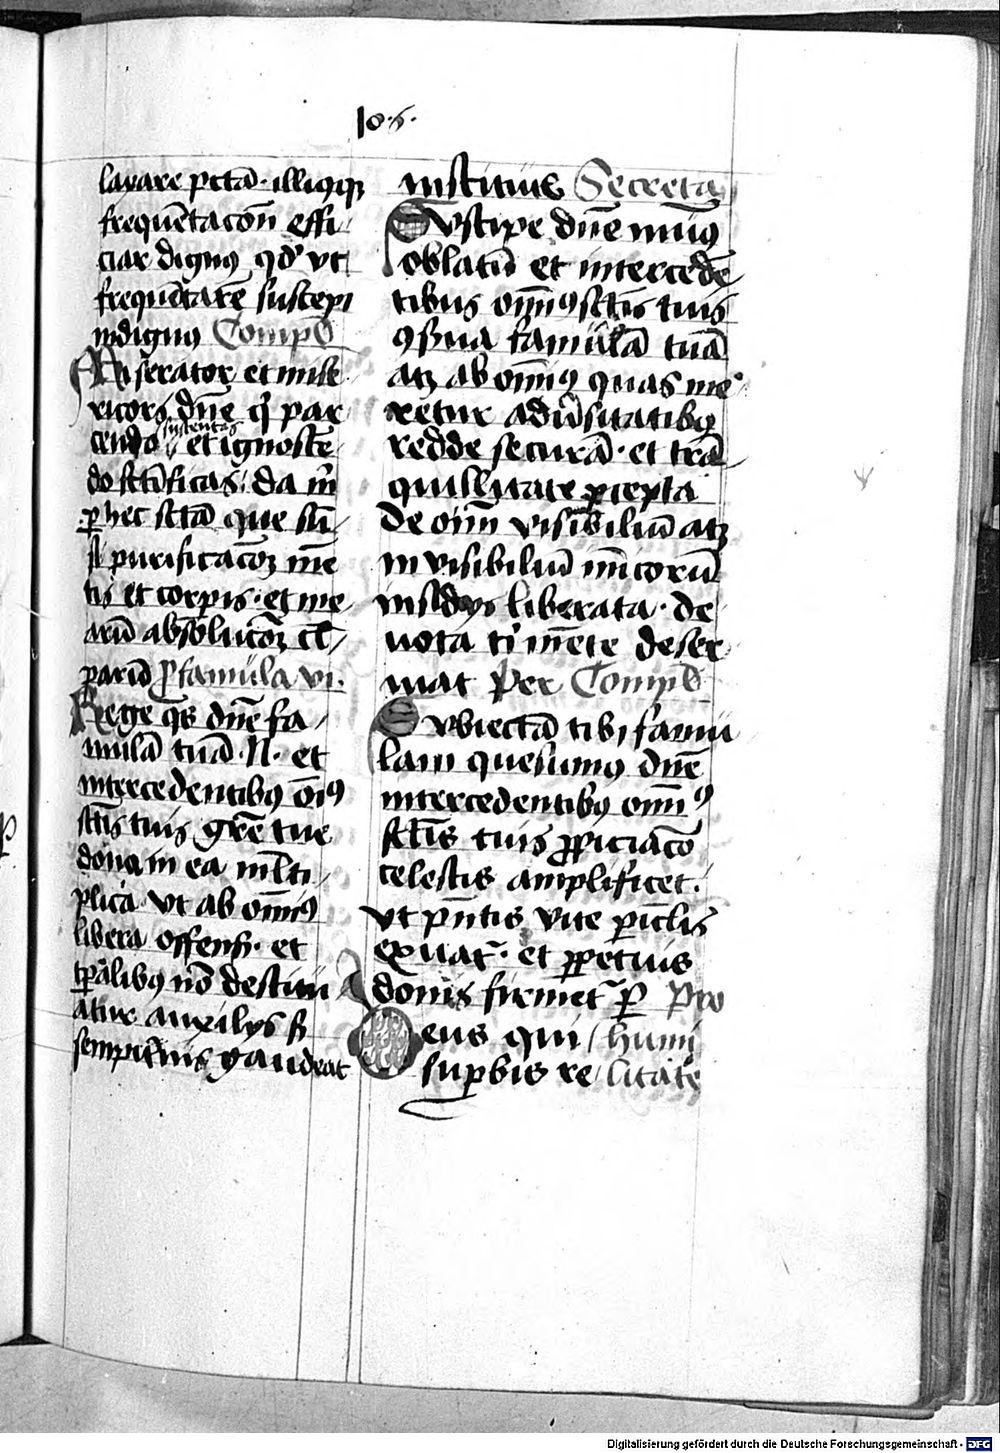 108.
lavare pctā· illiqȝ
frequētacōn effi
ciar dignꝰ qd' vt
frequētare suscepi
indignꝰ Complē
Miserator et mise
ricors dn̄e qͥ par
cendo sustentas et ignoscē
do sc̄tificas: da m̄
ꝑ hec sctā que sūi
purificacōꝫ mē
tis et corpis· et me
arū absolucōꝫ
parid P famula vi.
Rege qs dn̄e fa
mulā tuā ·N· et
intercedentibꝰ oīꝰ
sctis tuis grē tue
dona in ea mlti
plica vt ab omīꝰ
libera offensis· et
tpalibꝰ nō destitu
atur auxilijs
sempitnis gaudeat
institutis Secreta
Suscipe dn̄e munꝰ
oblatū et intercedē
tibus omīꝰ sctis tuis
famulā tuā
atȝ ab omīꝰ quas me
retur aduſitatibꝰ
redde securā· et trā
quillitate ꝑcepta
de omī visibiliū atȝ
invisibiliū īnīcorū
insidijs liberata· de
uota ti mēte deser
uiat Per Complē
Subiectā tibi famu
lam quesumꝰ dn̄e
intercedentibꝰ omīꝰ
sctis tuis ꝓpiciacō
celestis amplificet·
vt pn̄tis vite piclis
exuat· et ꝑpetuis
donis firmet ꝑ Pro
Deus qui humi
supbis re litate